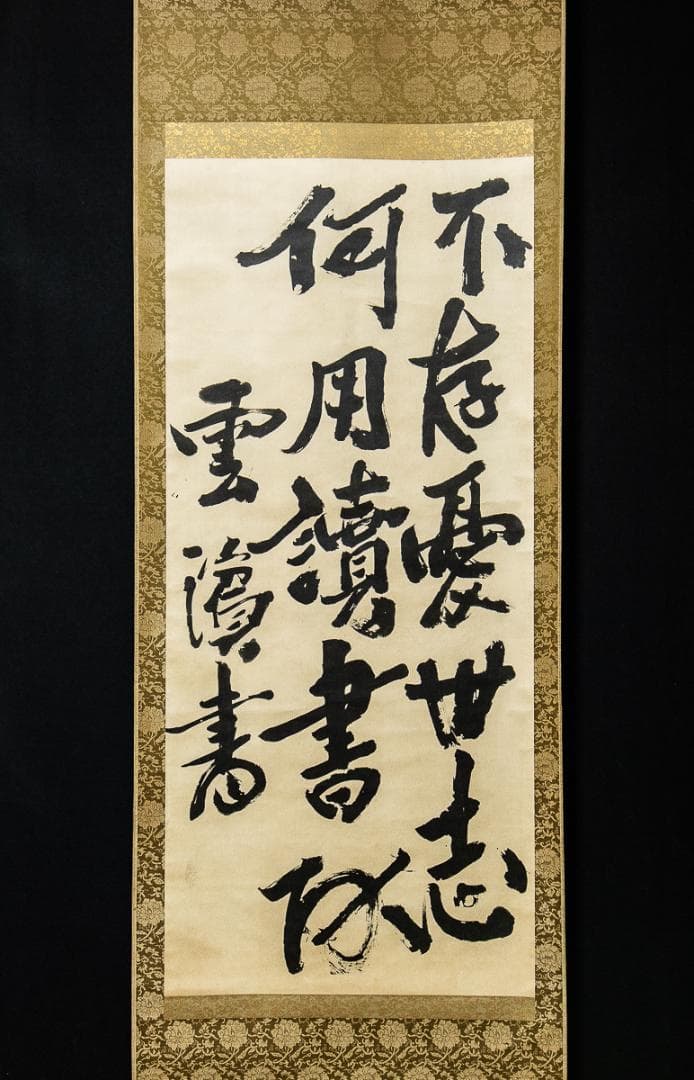 不存憂世志
何用讀書
雲濱書